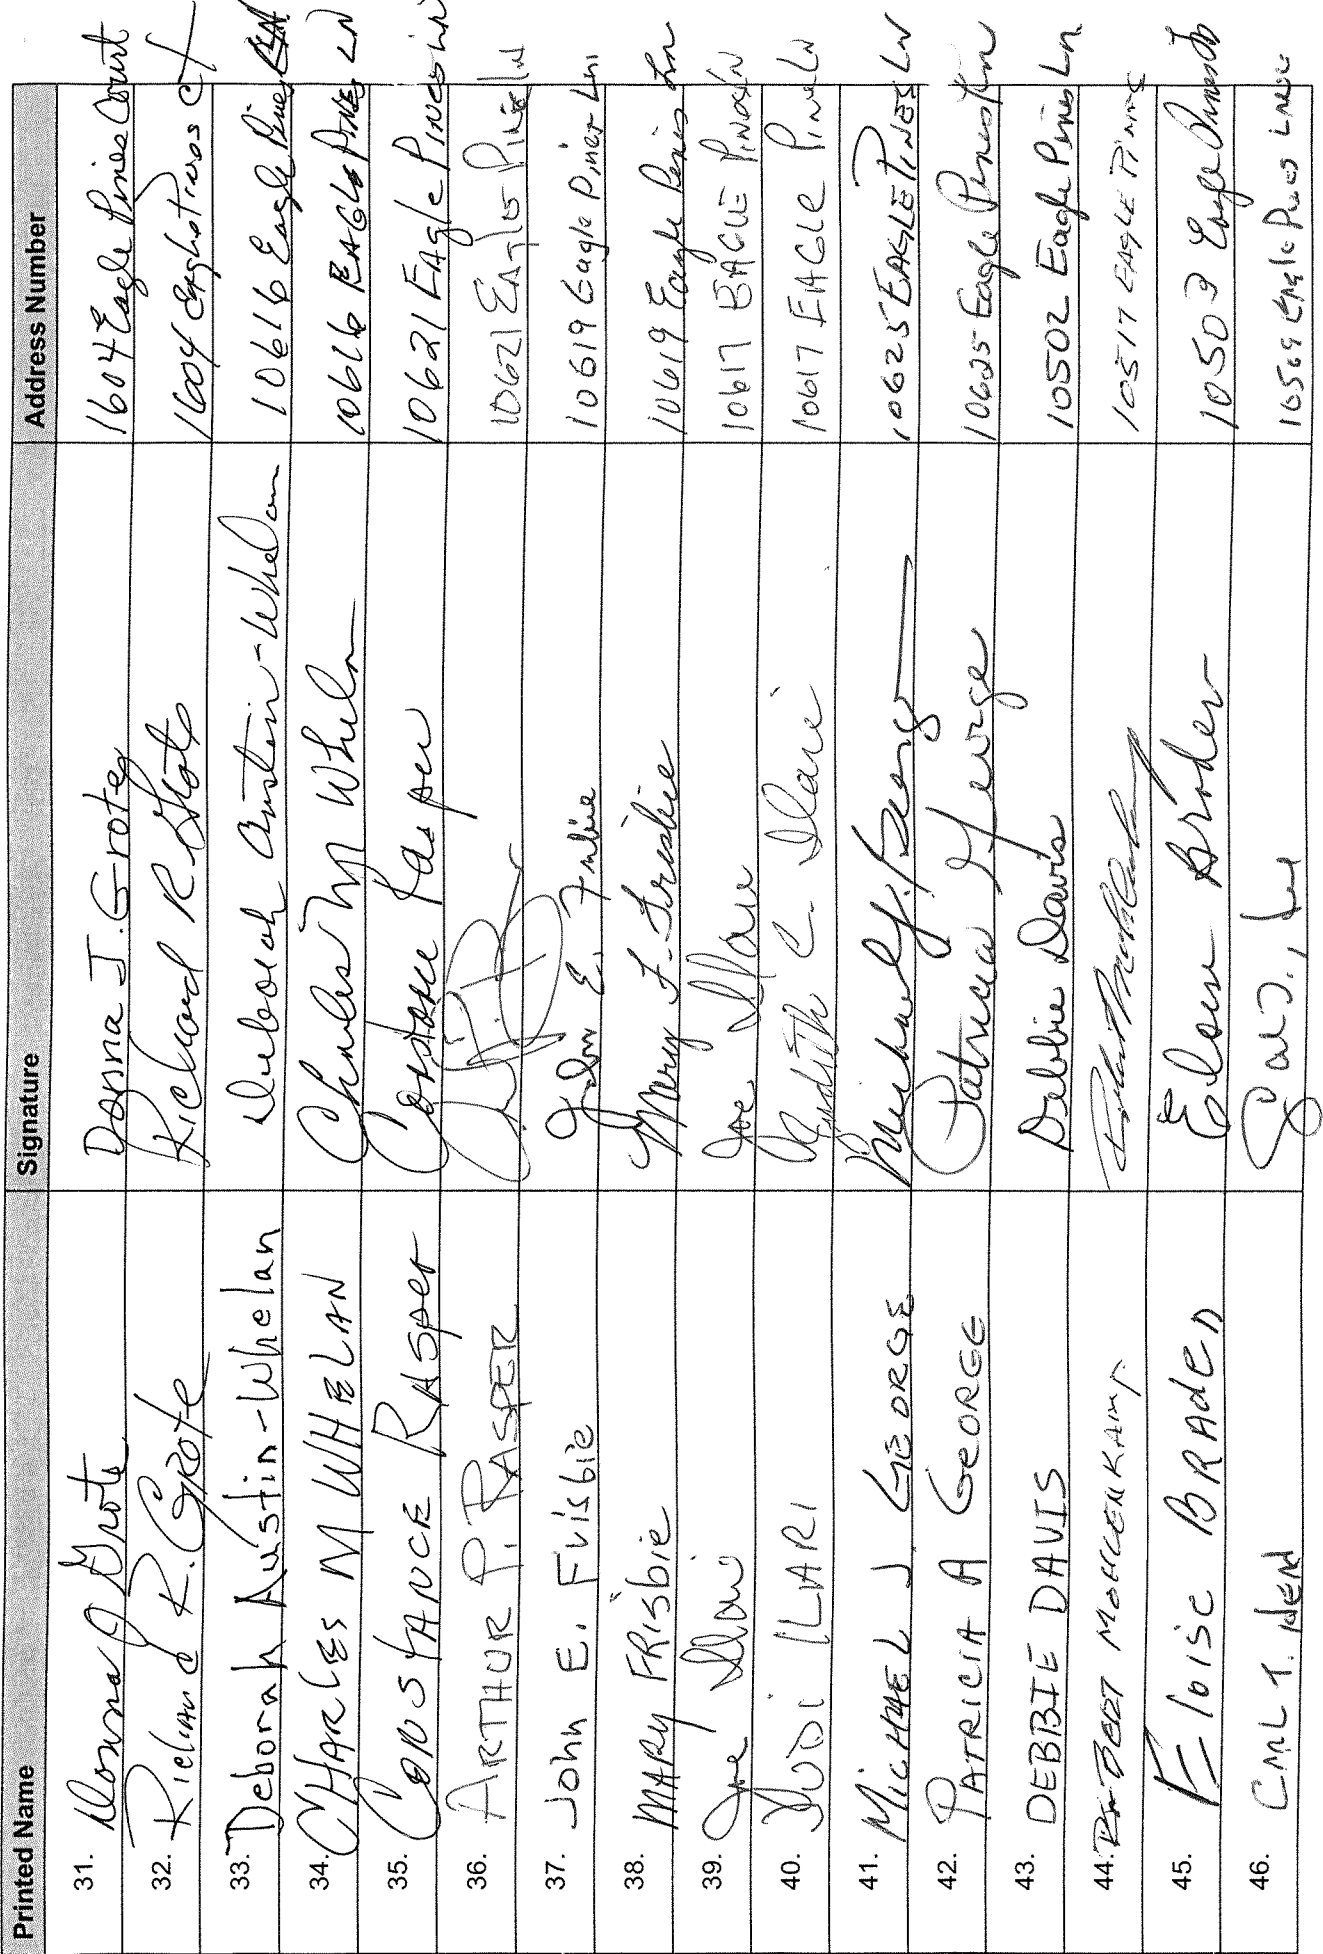 Printed Name Signature Address Number
31. Donna J Grote Donna J. Grote 1604 Eagle Pines Court
32. Richard R. Grote Richard R Grote 1604 Eagle Pines Ct
33. Deborah Austin-Whelan Deborah Austin-Whelan 10616 Eagle Pines LN.
34. CHARLES M WHELAN Charles M Whelan 10616 EAGLE PINES LN
35. CONSTANCE RASPER Constance Rasper 10621 EAGLE PINES LN
36. ARTHUR P. RASPER 10621 EAGLE PINES LN
37. John E. Frisbie John E. Frisbie 10619 Eagle Pines Ln
38. MARY FRISbie Mary F. Frisbie 10619 Eagle Pines Ln
39. Joe Ilari Joe Ilari 10617 EAGLE PINES LN
40. JUDI ILARI Judith C. Ilari 10617 EAGLE PINES LN
41. MICHAEL J GEORGE Michael J. George 10625 EAGLE PINES LN
42. PATRICIA A GEORGE Patricia A George 10625 Eagle Pines Ln
43. DEBBIE DAVIS Debbie Davis 10502 Eagle Pines Ln
44. ROBERT MOLLENKAMP 10517 EAGLE PINES
45. Eloise BRADEN Eloise Braden 10503 Eagle Pines Ln
46. CARL T. Eagle Pines Lane